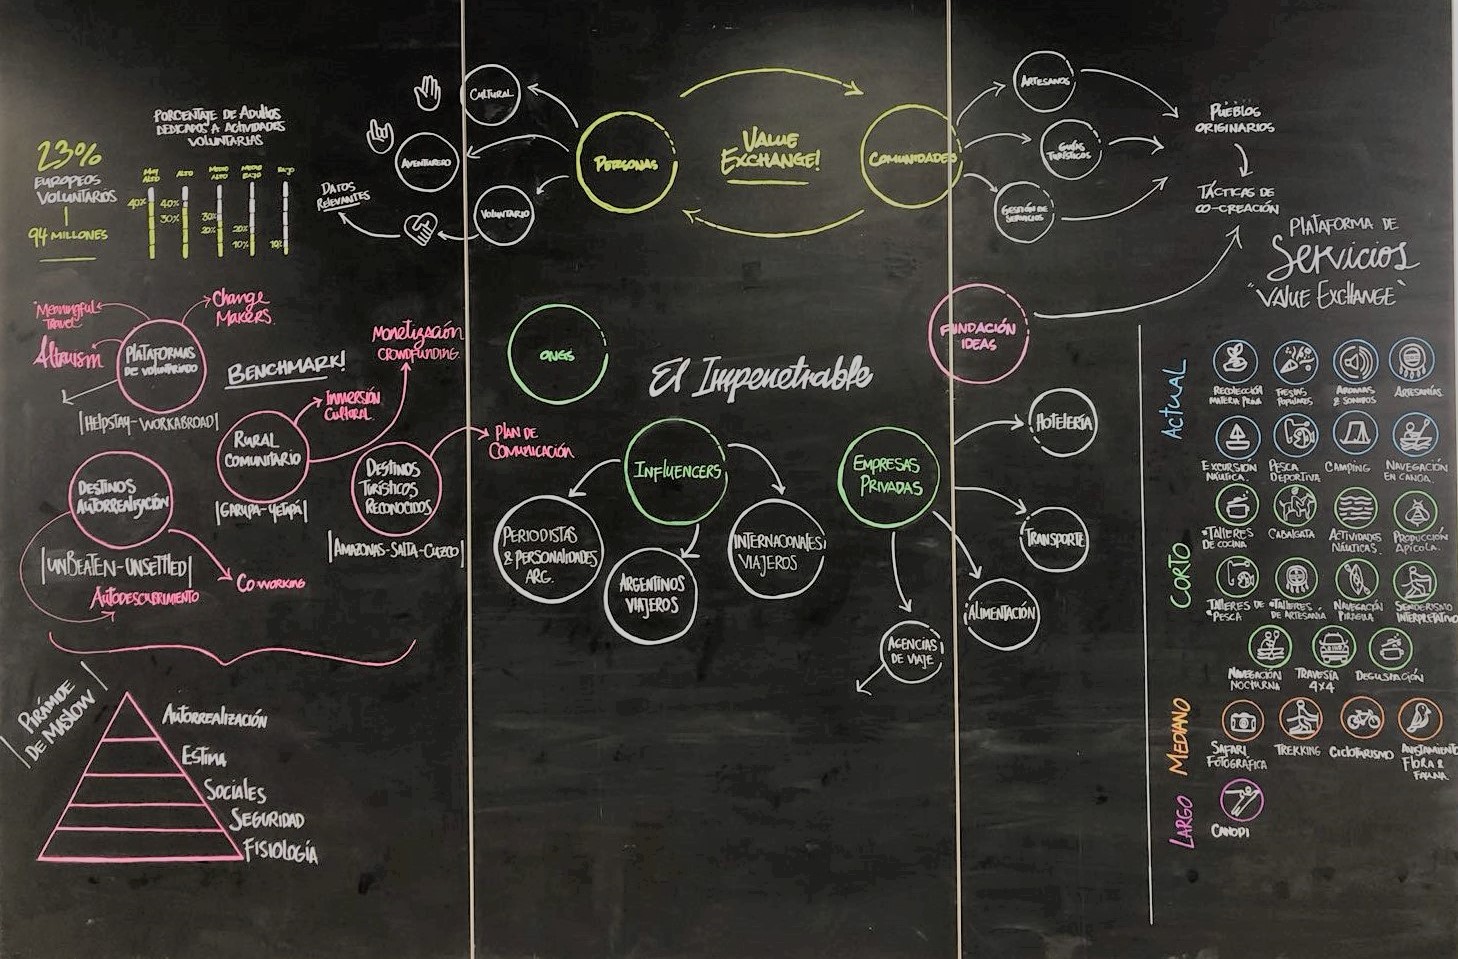 23%
EUROPEOS
VOLUNTARIOS
94 MILLONES
PORCENTAJE DE ADULTOS
DEDICADOS A ACTIVIDADES
VOLUNTARIAS
MUY
ALTO
ALTO
MEDIO
ALTO
MEDIO
BAJO
BAJO
40%
40%
30%
30%
20%
20%
10%
10%
DATOS
RELEVANTES
CULTURAL
AVENTURERO
VOLUNTARIO
PERSONAS
VALUE
EXCHANGE!
COMUNIDADES
ARTESANOS
GUÍAS
TURÍSTICOS
GESTIÓN DE
SERVICIOS
PUEBLOS
ORIGINARIOS
TÁCTICAS DE
CO-CREACIÓN
PLATAFORMA DE
Servicios
"VALUE EXCHANGE"
"Meaningful
Travel"
Change
Makers
Altruism
PLATAFORMAS
DE VOLUNTARIADO
|HELPSTAY-WORKABROAD|
BENCHMARK!
MONETIZACIÓN
CROWDFUNDING
INMERSIÓN
CULTURAL
RURAL
COMUNITARIO
|GARUPA-YETAPÁ|
DESTINOS
TURÍSTICOS
RECONOCIDOS
|AMAZONAS-SALTA-CUZCO|
PLAN DE
COMUNICACIÓN
DESTINOS
AUTORREALIZACIÓN
|UNBEATEN-UNSETTLED|
AUTODESCUBRIMIENTO
COWORKING
PIRÁMIDE
DE MASLOW
AUTORREALIZACIÓN
ESTIMA
SOCIALES
SEGURIDAD
FISIOLOGÍA
ONGS
El Impenetrable
FUNDACIÓN
IDEAS
INFLUENCERS
PERIODISTAS
& PERSONALIDADES
ARG.
ARGENTINOS
VIAJEROS
INTERNACIONALES
VIAJEROS
EMPRESAS
PRIVADAS
HOTELERÍA
TRANSPORTE
ALIMENTACIÓN
AGENCIAS
DE VIAJE
ACTUAL
RECOLECCIÓN
MATERIA PRIMA
FIESTAS
POPULARES
AROMAS
& SONIDOS
ARTESANÍAS
EXCURSIÓN
NÁUTICA.
PESCA
DEPORTIVA
CAMPING
NAVEGACIÓN
EN CANOA.
CORTO
*TALLERES
DE COCINA
CABALGATA
ACTIVIDADES
NÁUTICAS.
PRODUCCIÓN
APÍCOLA.
TALLERES DE
*PESCA
*TALLERES
DE ARTESANÍA
NAVEGACIÓN
PIRAGUA
SENDERISMO
INTERPRETATIVO
NAVEGACIÓN
NOCTURNA
TRAVESÍA
4X4
DEGUSTACIÓN
MEDIANO
SAFARI
FOTOGRÁFICA
TREKKING
CICLOTURISMO
AVISTAMIENTO
FLORA &
FAUNA.
LARGO
CANOPI